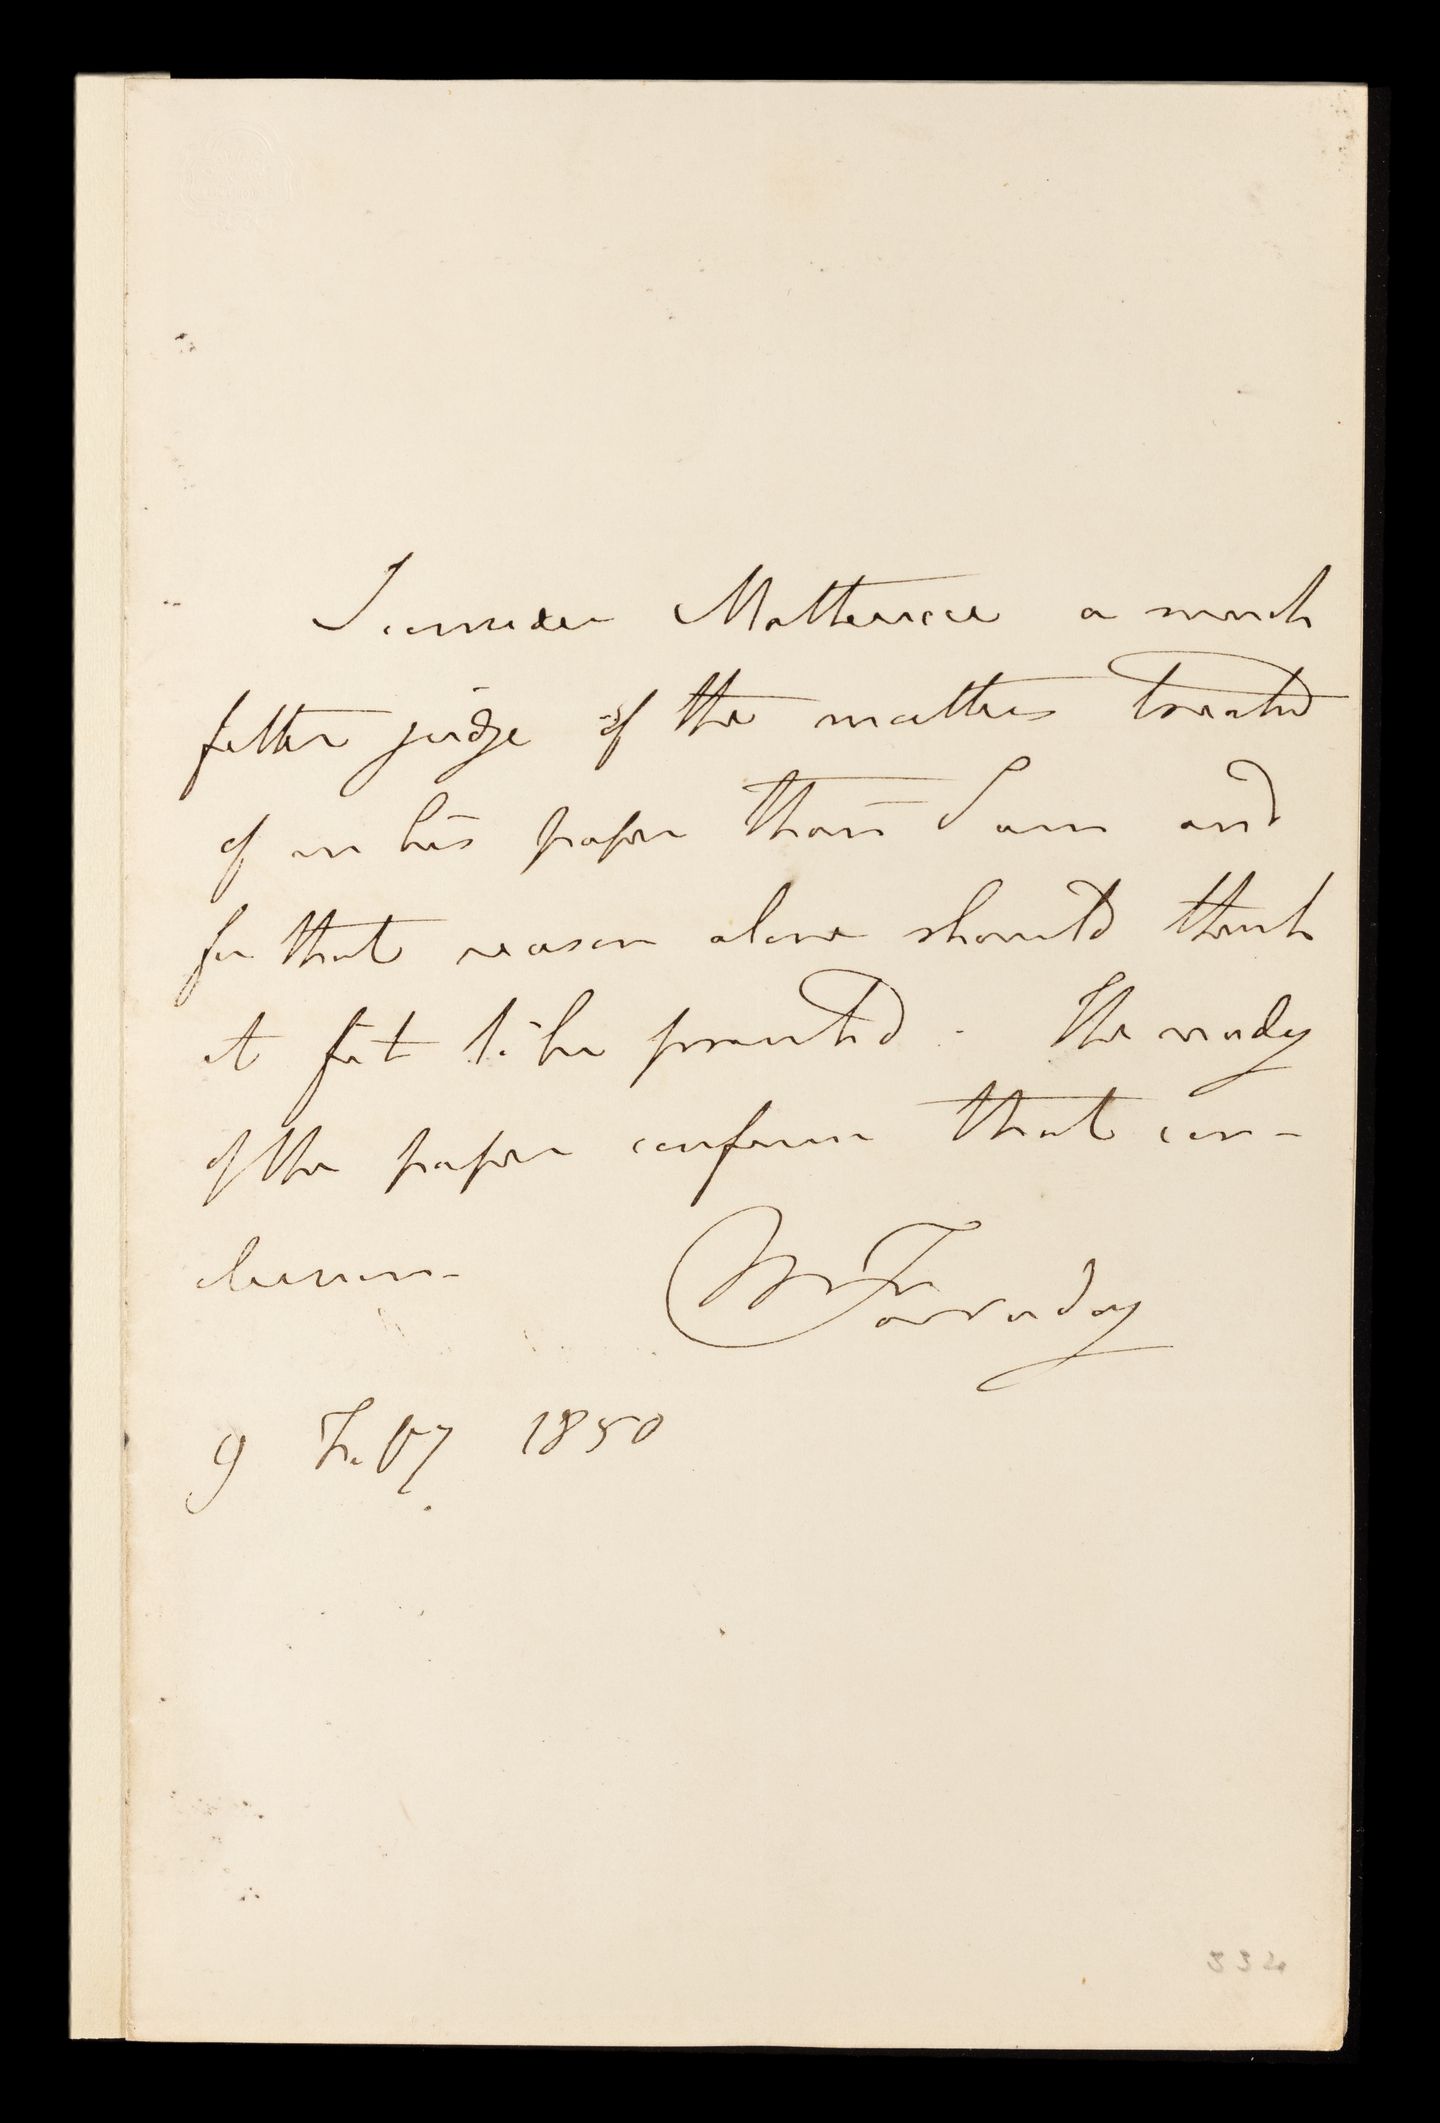 I consider Matteucci a much
fitter judge of the matters treated
of in his paper than I am and
for that reason alone should think
it fit to be printed. The reading
of the paper confirms that con-
clusion-
M Faraday
9 Feby 1850
334